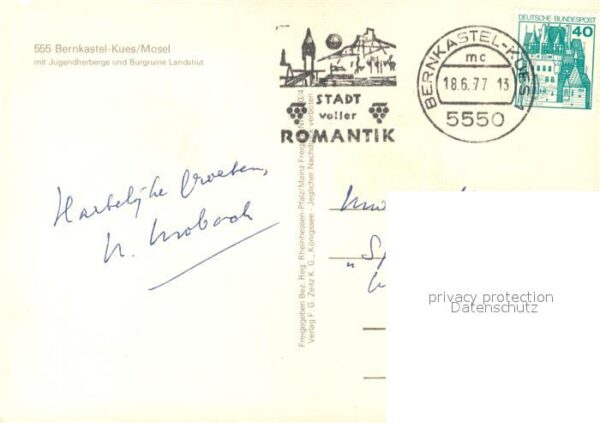 555 Bernkastel-Kues/Mosel
mit Jugendherberge und Burgruine Landshut
STADT
voller
ROMANTIK
BERNKASTEL-KUES 1
mc
18.6.77 13
5550
DEUTSCHE BUNDESPOST
40
Hartelijke Groeten,
Freigegeben Bez. Reg. Rheinhessen-Pfalz/Mainz Freig.
Verlag F. G. Zeitz K. G., Königssee · Jeglicher Nachdruck verboten
privacy protection
Datenschutz